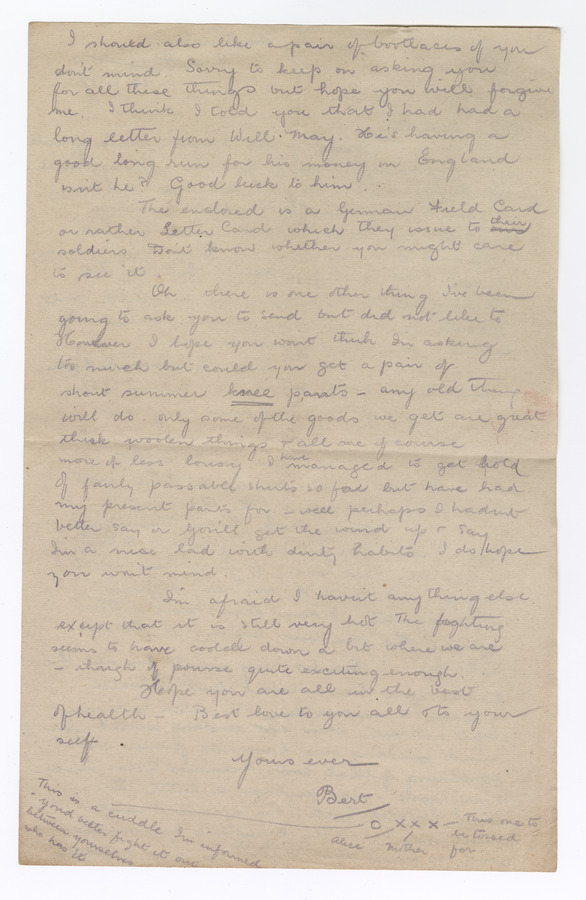 I should also like a pair of bootlaces if you
don't mind. Sorry to keep on asking you
for all these things but hope you will forgive
me. I think I told you that I had had a
long letter from Will. May. He's having a
good long run for his money in England
isn't he? Good luck to him . .
The enclosed is a German Field Card
or rather Letter Card which they issue to their
soldiers. Don't know whether you might care
to see it.
Oh there is one other thing I've been
going to ask you to send but did not like to
However I hope you wont think I'm asking
too much but could you get a pair of
short summer knee pants - any old thing
will do. only some of the goods we get are great
thick woolen things & all are of course
more of less lousy I have managed to get hold
of fairly passable shirts so far but have had
my present pants for - well perhaps I hadn't
better say or you'll get the wind up & say
I'm a nice lad with dirty habits. I do hope
you won't mind.
I'm afraid I haven't anything else
except that it is still very hot The fighting
seems to have cooled down a bit where we are
- though of course quite exciting enough.
Hope you are all in the best
of health - Best love to you all & to your
self
Yours ever
Bert
O x x x - This one to
be tossed
for
Alice mother
This is a cuddle I'm informed
you'd better fight it out
between yourselves
who has it